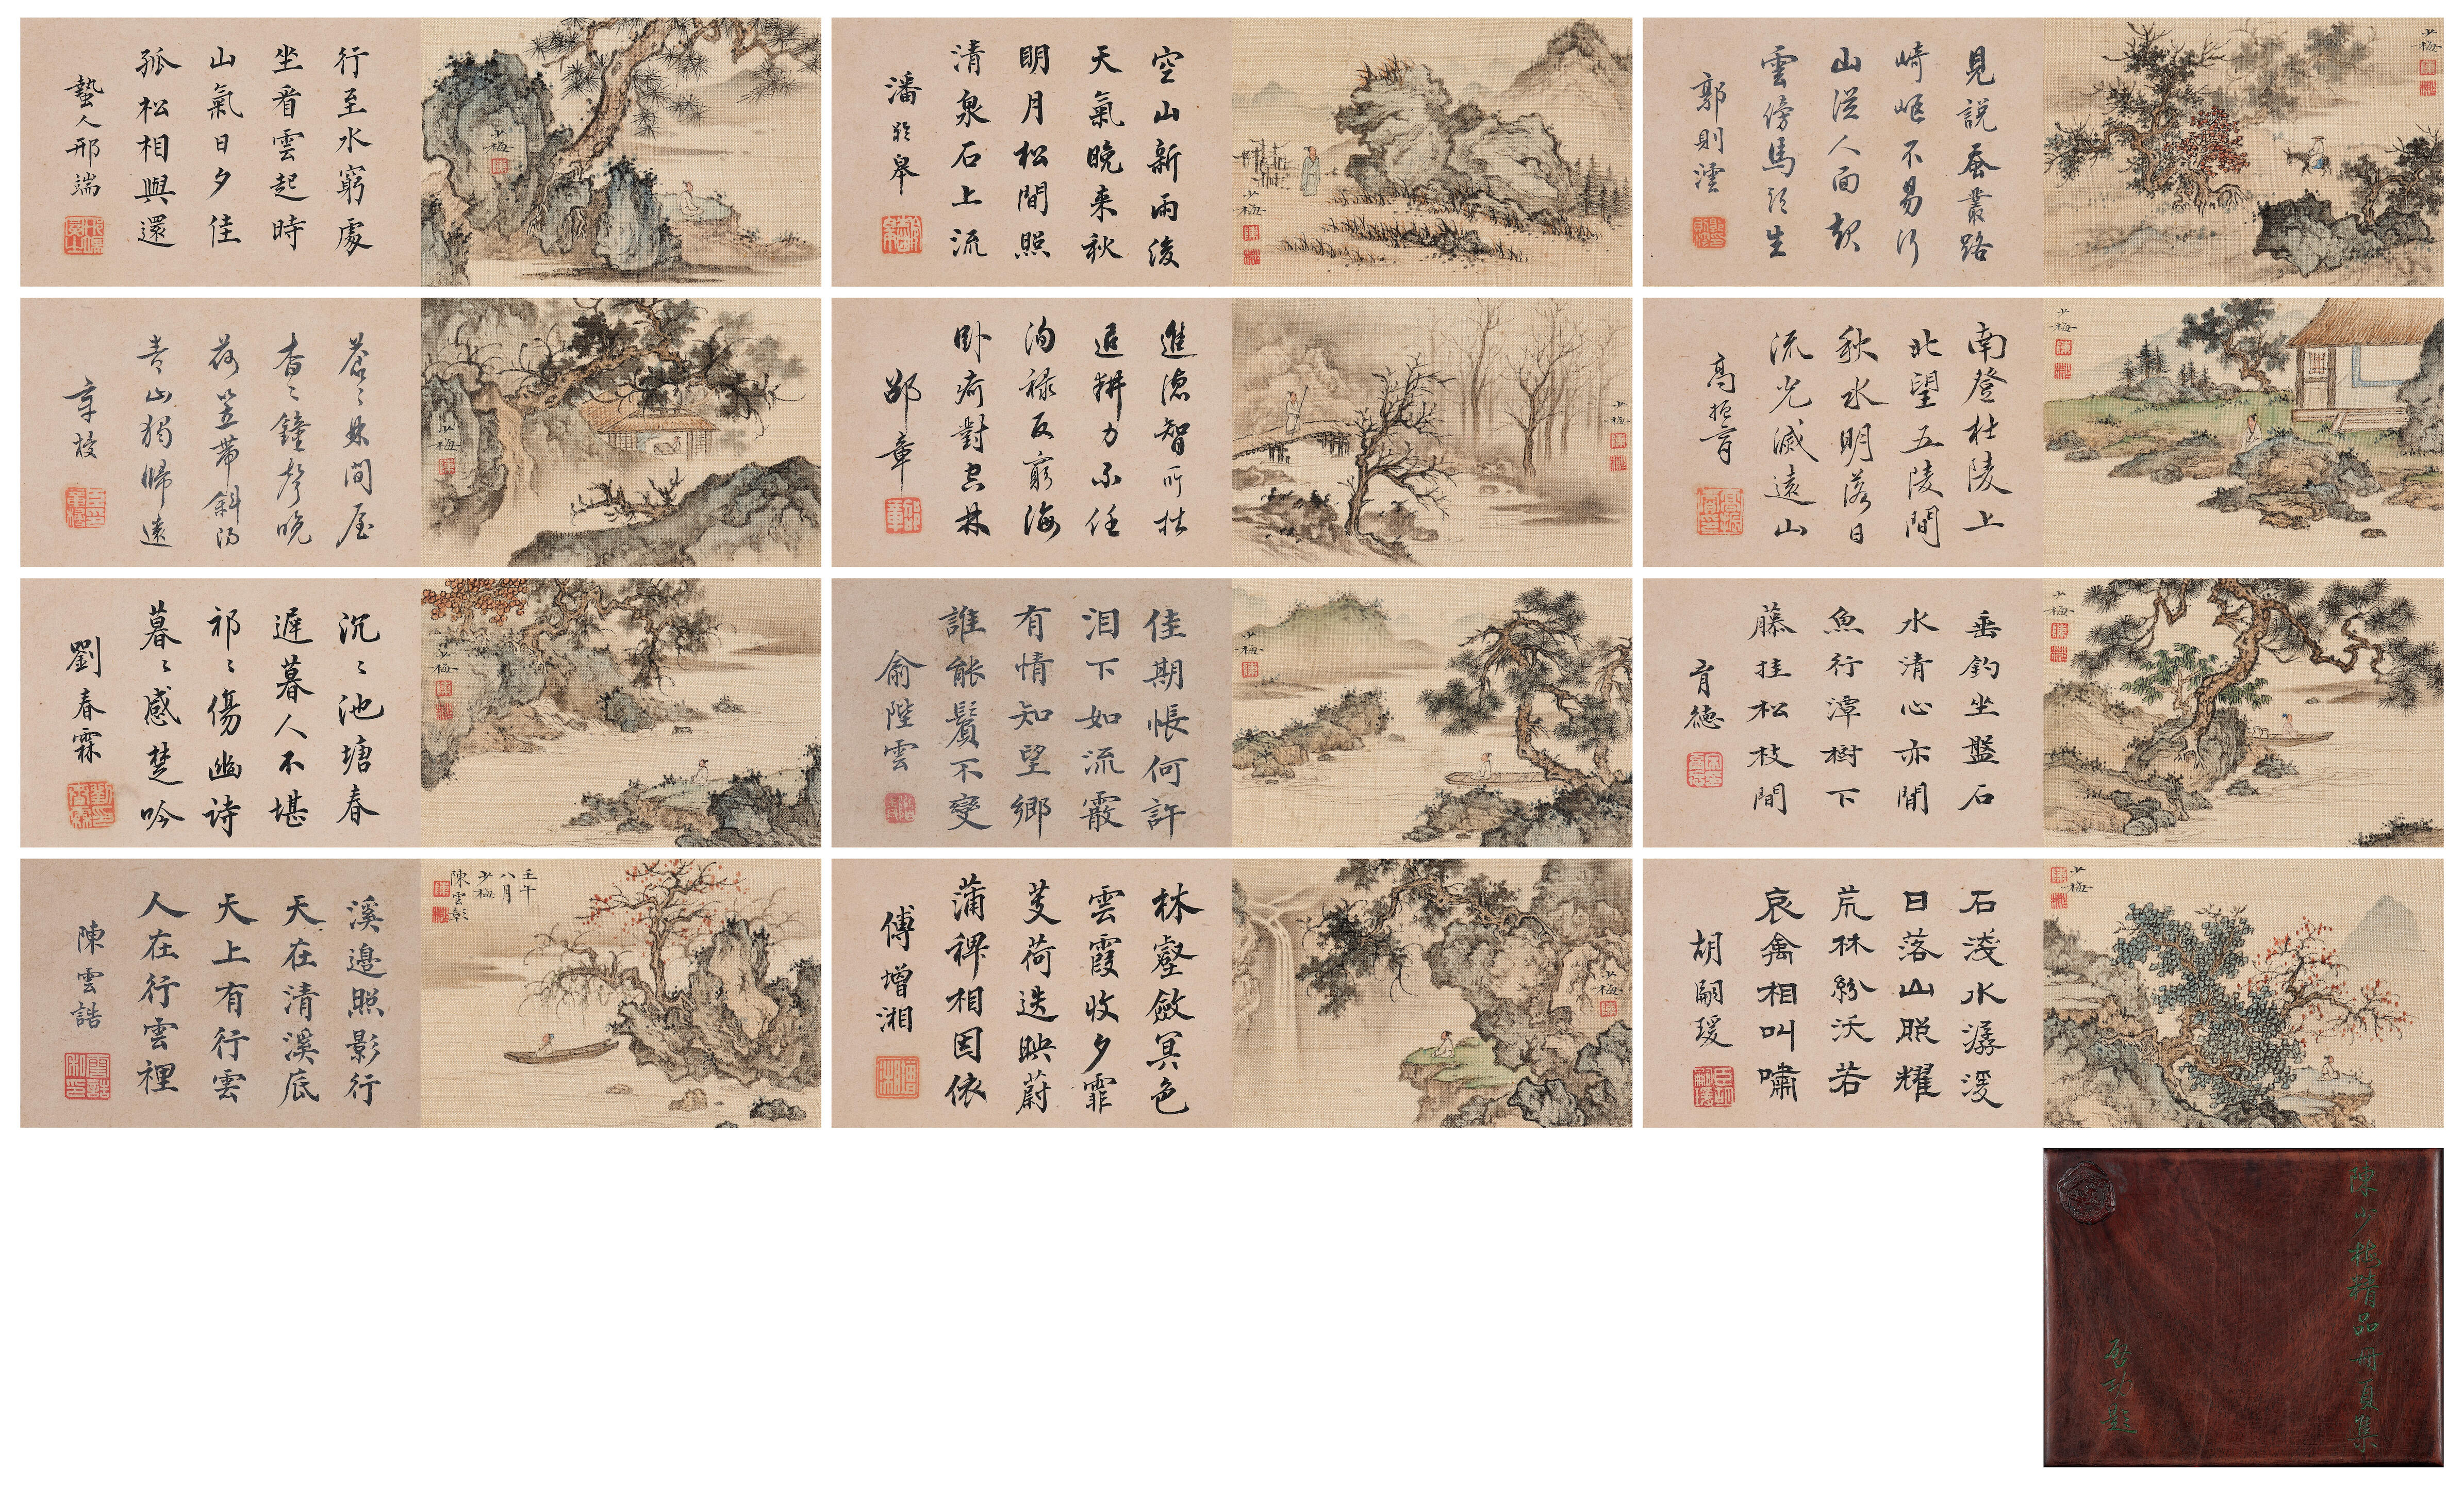 少梅
見說蚕叢路
崎嶇不易行
山從人面起
雲傍馬頭生
郭則澐
少梅
空山新雨後
天氣晚来秋
明月松間照
清泉石上流
潘齡皋
少梅
行至水窮處
坐看雲起時
山氣日夕佳
孤松相與還
蟄人邢端
少梅
南登杜陵上
北望五陵間
秋水明落日
流光滅遠山
高振霄
少梅
進德智所拙
退耕力不任
徇祿反窮海
卧痾對空林
邵章
少梅
蒼〻林間屋
杳〻鐘聲晚
荷笠帶斜陽
青山獨歸遠
章梫
少梅
垂釣坐盤石
水清心亦閒
魚行潭樹下
藤挂松枝間
育德
少梅
佳期悵何許
泪下如流霰
有情知望鄉
誰能鬒不變
俞陛雲
少梅
沉〻池塘春
遲暮人不堪
祁〻傷幽詩
暮〻感楚吟
劉春霖
少梅
石淺水潺湲
日落山照耀
荒林紛沃若
哀禽相叫嘯
胡嗣瑗
少梅
林壑斂冥色
雲霞收夕霏
芰荷迭映蔚
蒲稗相因依
傅增湘
壬午
八月
少梅
陳雲彰
溪邊照影行
天在清溪底
天上有行雲
人在行雲裡
陳雲誥
陳少梅精品冊頁集
啟功題